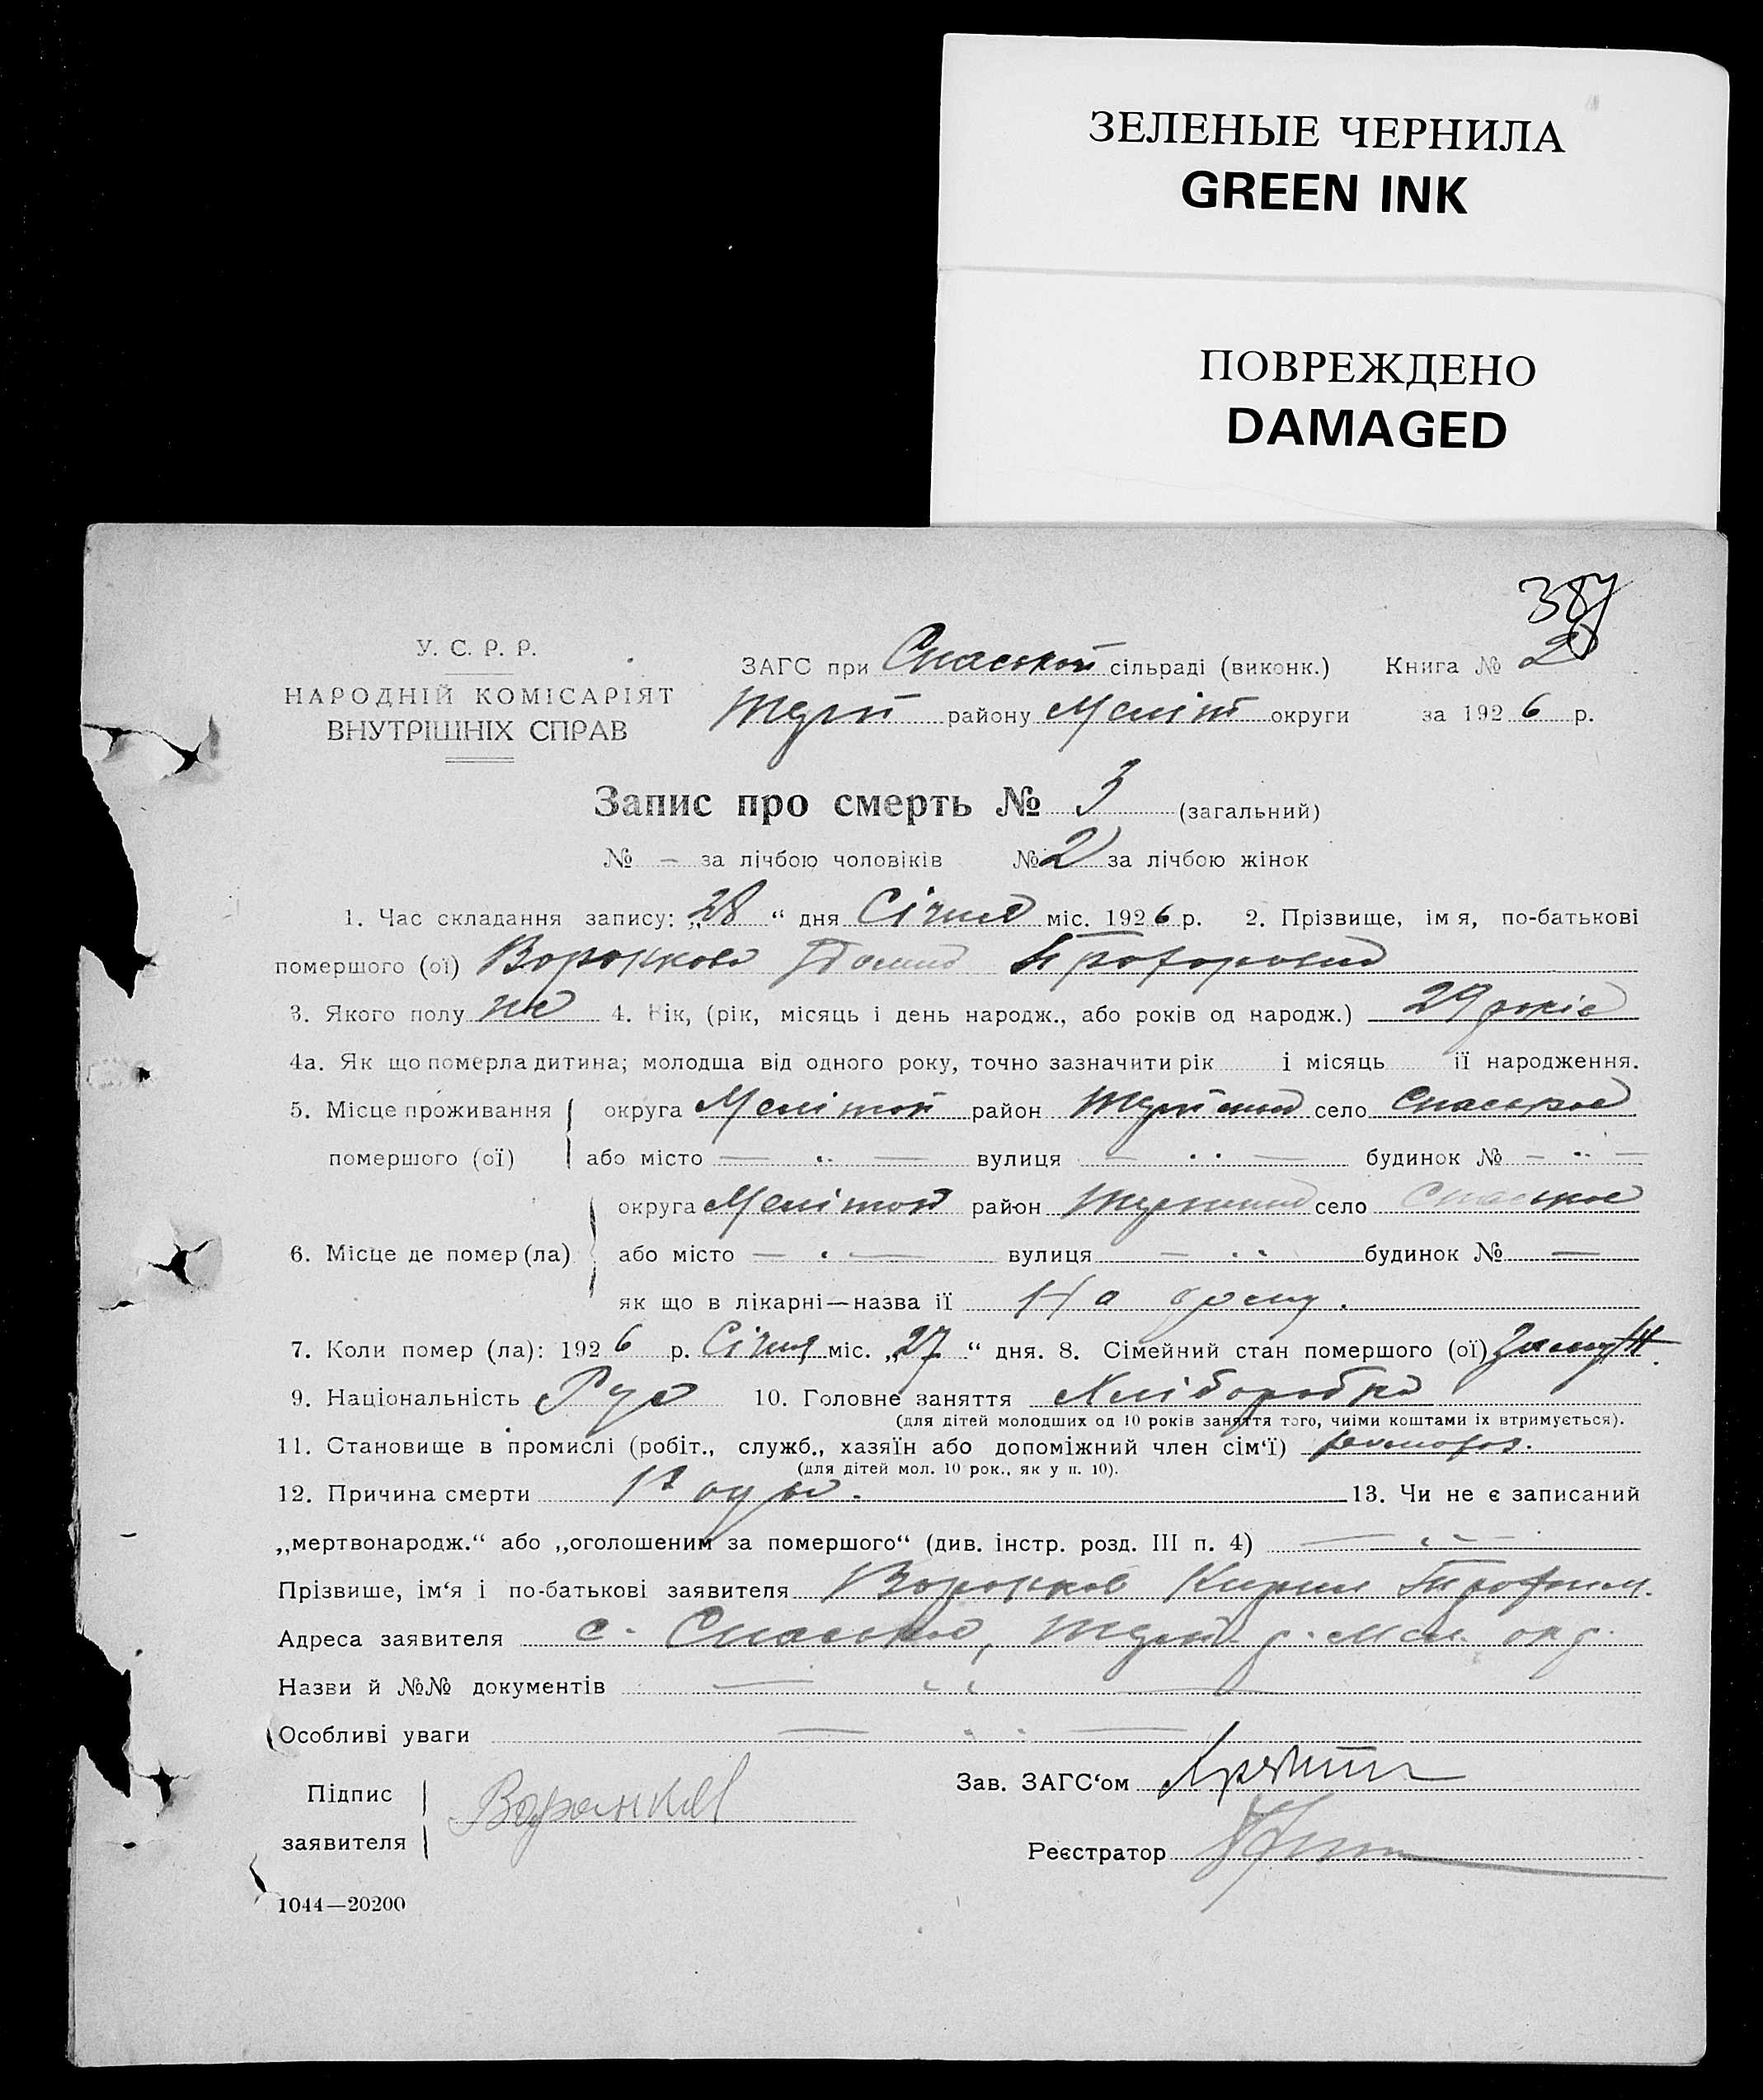 ЗЕЛЕНЫЕ ЧЕРНИЛА
GREEN INK
ПОВРЕЖДЕНО
DAMAGED
387
У. С. Р. Р.
НАРОДНІЙ КОМІСАРІЯТ
ВНУТРІШНІХ СПРАВ
ЗАГС при Спаській сільраді (виконк.) Книга № 2
району Меліт округи за 1926 р.
Запис про смерть № 3 (загальний)
№ — за лічбою чоловіків № 2 за лічбою жінок
1. Час складання запису: „28“ дня Січня міс. 1926 р. 2. Прізвище, імя, по-батькові
помершого (ої) Воронкова
3. Якого полу 4. Вік, (рік, місяць і день народж., або років од народж.) 29 років
4а. Як що померла дитина; молодша від одного року, точно зазначити рік і місяць її народження.
5. Місце проживання округа Мелітоп район село Спаськое
помершого (ої) або місто — „ — вулиця — „ — будинок № — „ —
округа Мелітоп район село Спаськое
6. Місце де помер (ла) або місто — „ — вулиця — „ будинок № —
як що в лікарні—назва її На дому.
7. Коли помер (ла): 1926 р. Січня міс. „27“ дня. 8. Сімейний стан помершого (ої) Замуж.
9. Національність Рус 10. Головне заняття Хліборобка
(для дітей молодших од 10 років заняття того, чиїми коштами їх втримується).
11. Становище в промислі (робіт., служб., хазяїн або допоміжний член сім‘ї)
(для дітей мол. 10 рок., як у п. 10).
12. Причина смерти Роды. 13. Чи не є записаний
„мертвонародж.“ або „оголошеним за помершого“ (див. інстр. розд. III п. 4) — „ —
Прізвише, ім‘я і по-батькові заявителя Воронков Кирил Трофим.
Адреса заявителя с. Спаськое, р. Мел. окр.
Назви й №№ документів — „ —
Особливі уваги — „ —
Підпис
заявителя Воронков
Зав. ЗАГС‘ом
Реєстратор
1044—20200